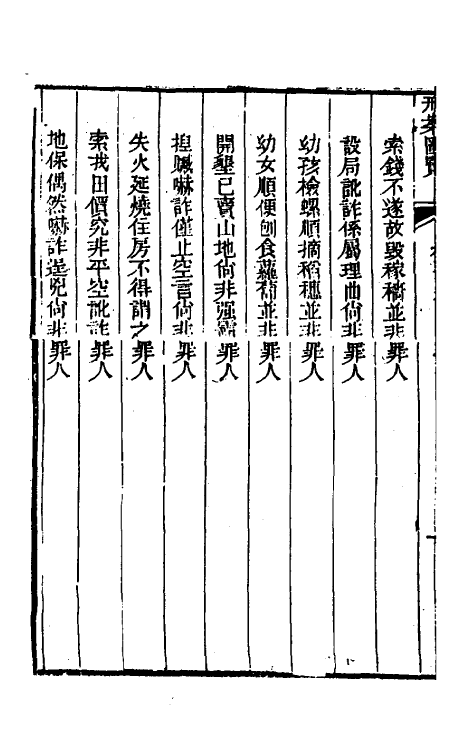 刑案匯覽
索錢不遂故毀稼穡並非罪人
設局訛詐係屬理曲尚非罪人
幼孩檢螺順摘稻穗並非罪人
幼女順便刨食蘿蔔並非罪人
開墾已賣山地尚非强霸罪人
捏贓嚇詐僅止空言尚非罪人
失火延燒住房不得謂之罪人
索找田價究非平空訛詐罪人
地保偶然嚇詐逞兇尚非罪人